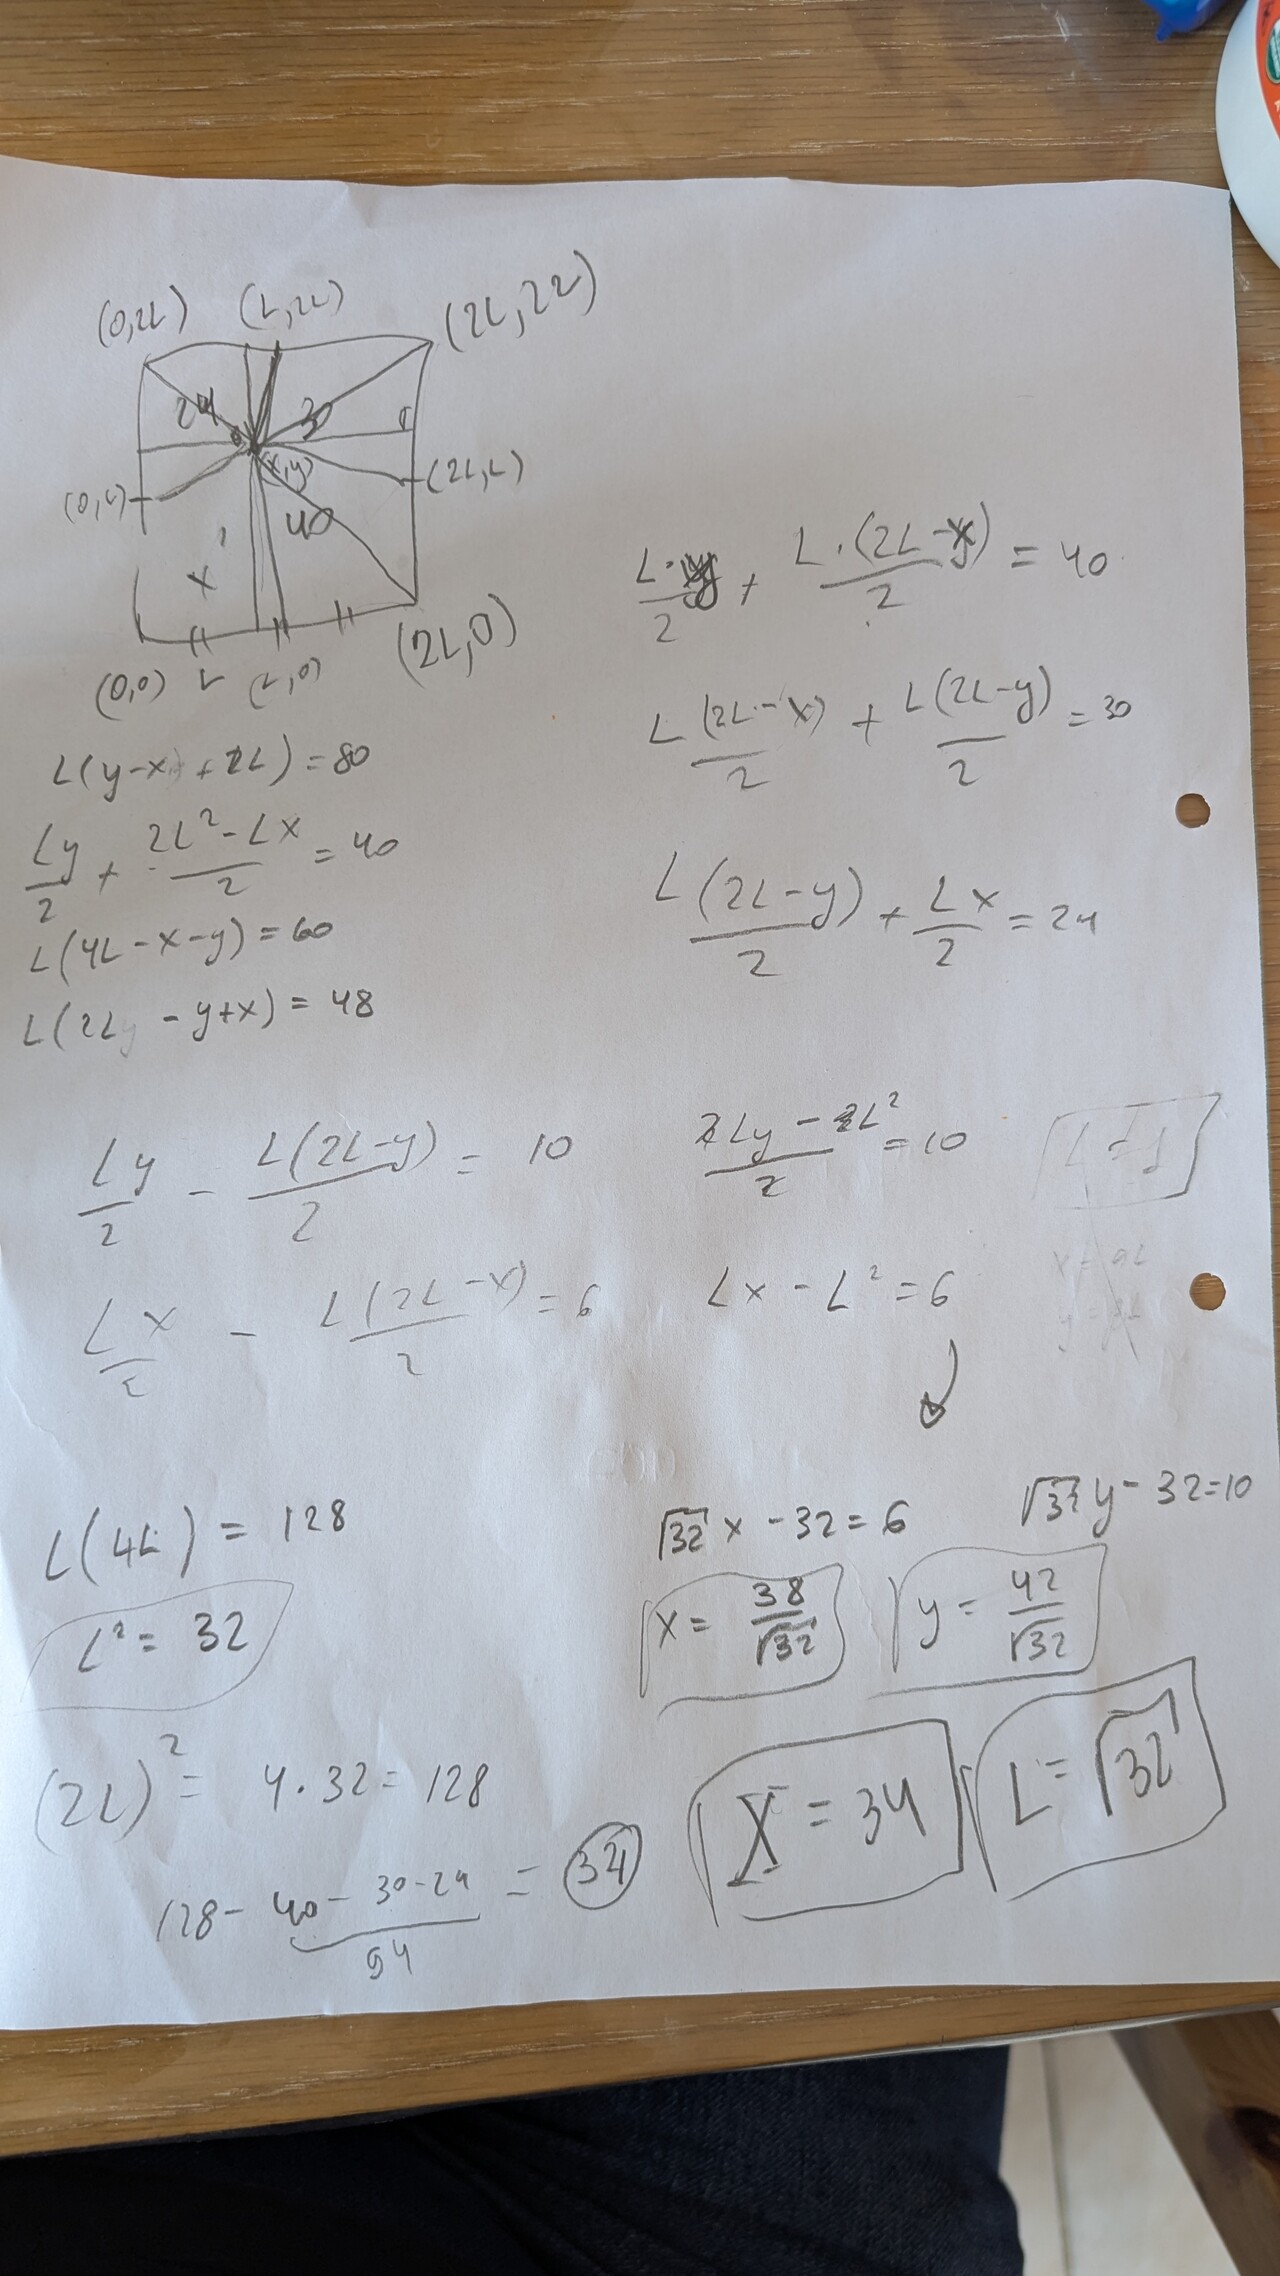 (0,2L) (L,2L) (2L,2L)
24 30
(x,y)
(0,L) (2L,L)
40
X
(0,0) L (L,0) (2L,0)
L·y/2 + L·(2L-y)/2 = 40
L(2L-x)/2 + L(2L-y)/2 = 30
L(2L-y)/2 + Lx/2 = 24
L(y-x+2L) = 80
Ly/2 + 2L²-Lx/2 = 40
L(4L-x-y) = 60
L(2L-y+x) = 48
Ly/2 - L(2L-y)/2 = 10
2Ly-2L²/2 = 10
Lx/2 - L(2L-x)/2 = 6
Lx - L² = 6
L(4L) = 128
L² = 32
√32 x - 32 = 6
√32 y - 32 = 10
x = 38/√32
y = 42/√32
(2L)² = 4·32 = 128
128 - 40 - 30 - 24 = 34
94
X = 34
L = √32